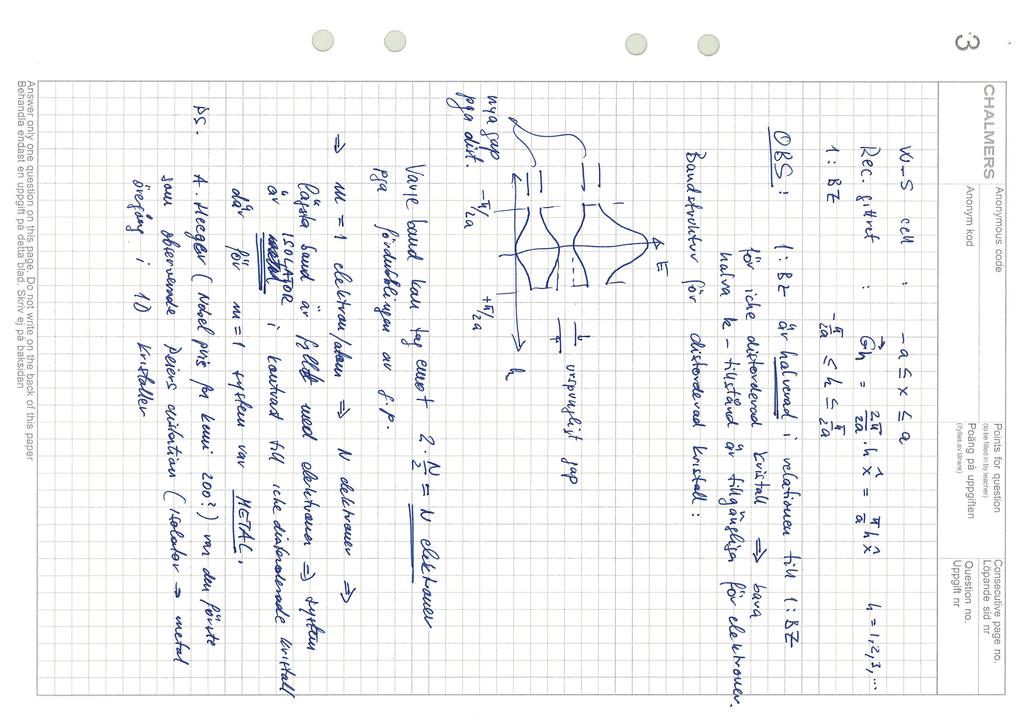 3
CHALMERS
Anonymous code
Anonym kod
Points for question
(to be filled in by teacher)
Poäng på uppgiften
(ifylles av lärare)
Consecutive page no.
Löpande sid nr
Question no.
Uppgift nr
W-S cell : -a ≤ x ≤ a
Rec. gittret : Gh = 2π/2a · h x̂ = π/a h x̂ h = 1,2,3,...
1:BZ -π/2a ≤ k ≤ π/2a
OBS: 1:BZ är halverad i relationen till 1:BZ
för icke distorderad kristall ⇒ bara
halva k-tillstånd är tillgängliga för elektroner.
Bandstruktur för distorderad kristall:
E
ursprungligt gap
k
-π/2a
+π/2a
nya gap
pga dist.
Varje band kan tag emot 2·N/2 = N elektroner
pga fördubblingen av g.p.
⇒ m = 1 elektron/atom ⇒ N elektroner ⇒
lägsta band är fyllt med elektroner ⇒ system
är ISOLATOR i kontrast till icke distorderade kristall
där för m=1 system var METAL.
PS. A. Heeger (Nobel pris för kemi 200?) var den förste
som observerade Peiers distortion (isolator → metal
övergång i 1D kristaller
Answer only one question on this page. Do not write on the back of this paper
Behandla endast en uppgift på detta blad. Skriv ej på baksidan